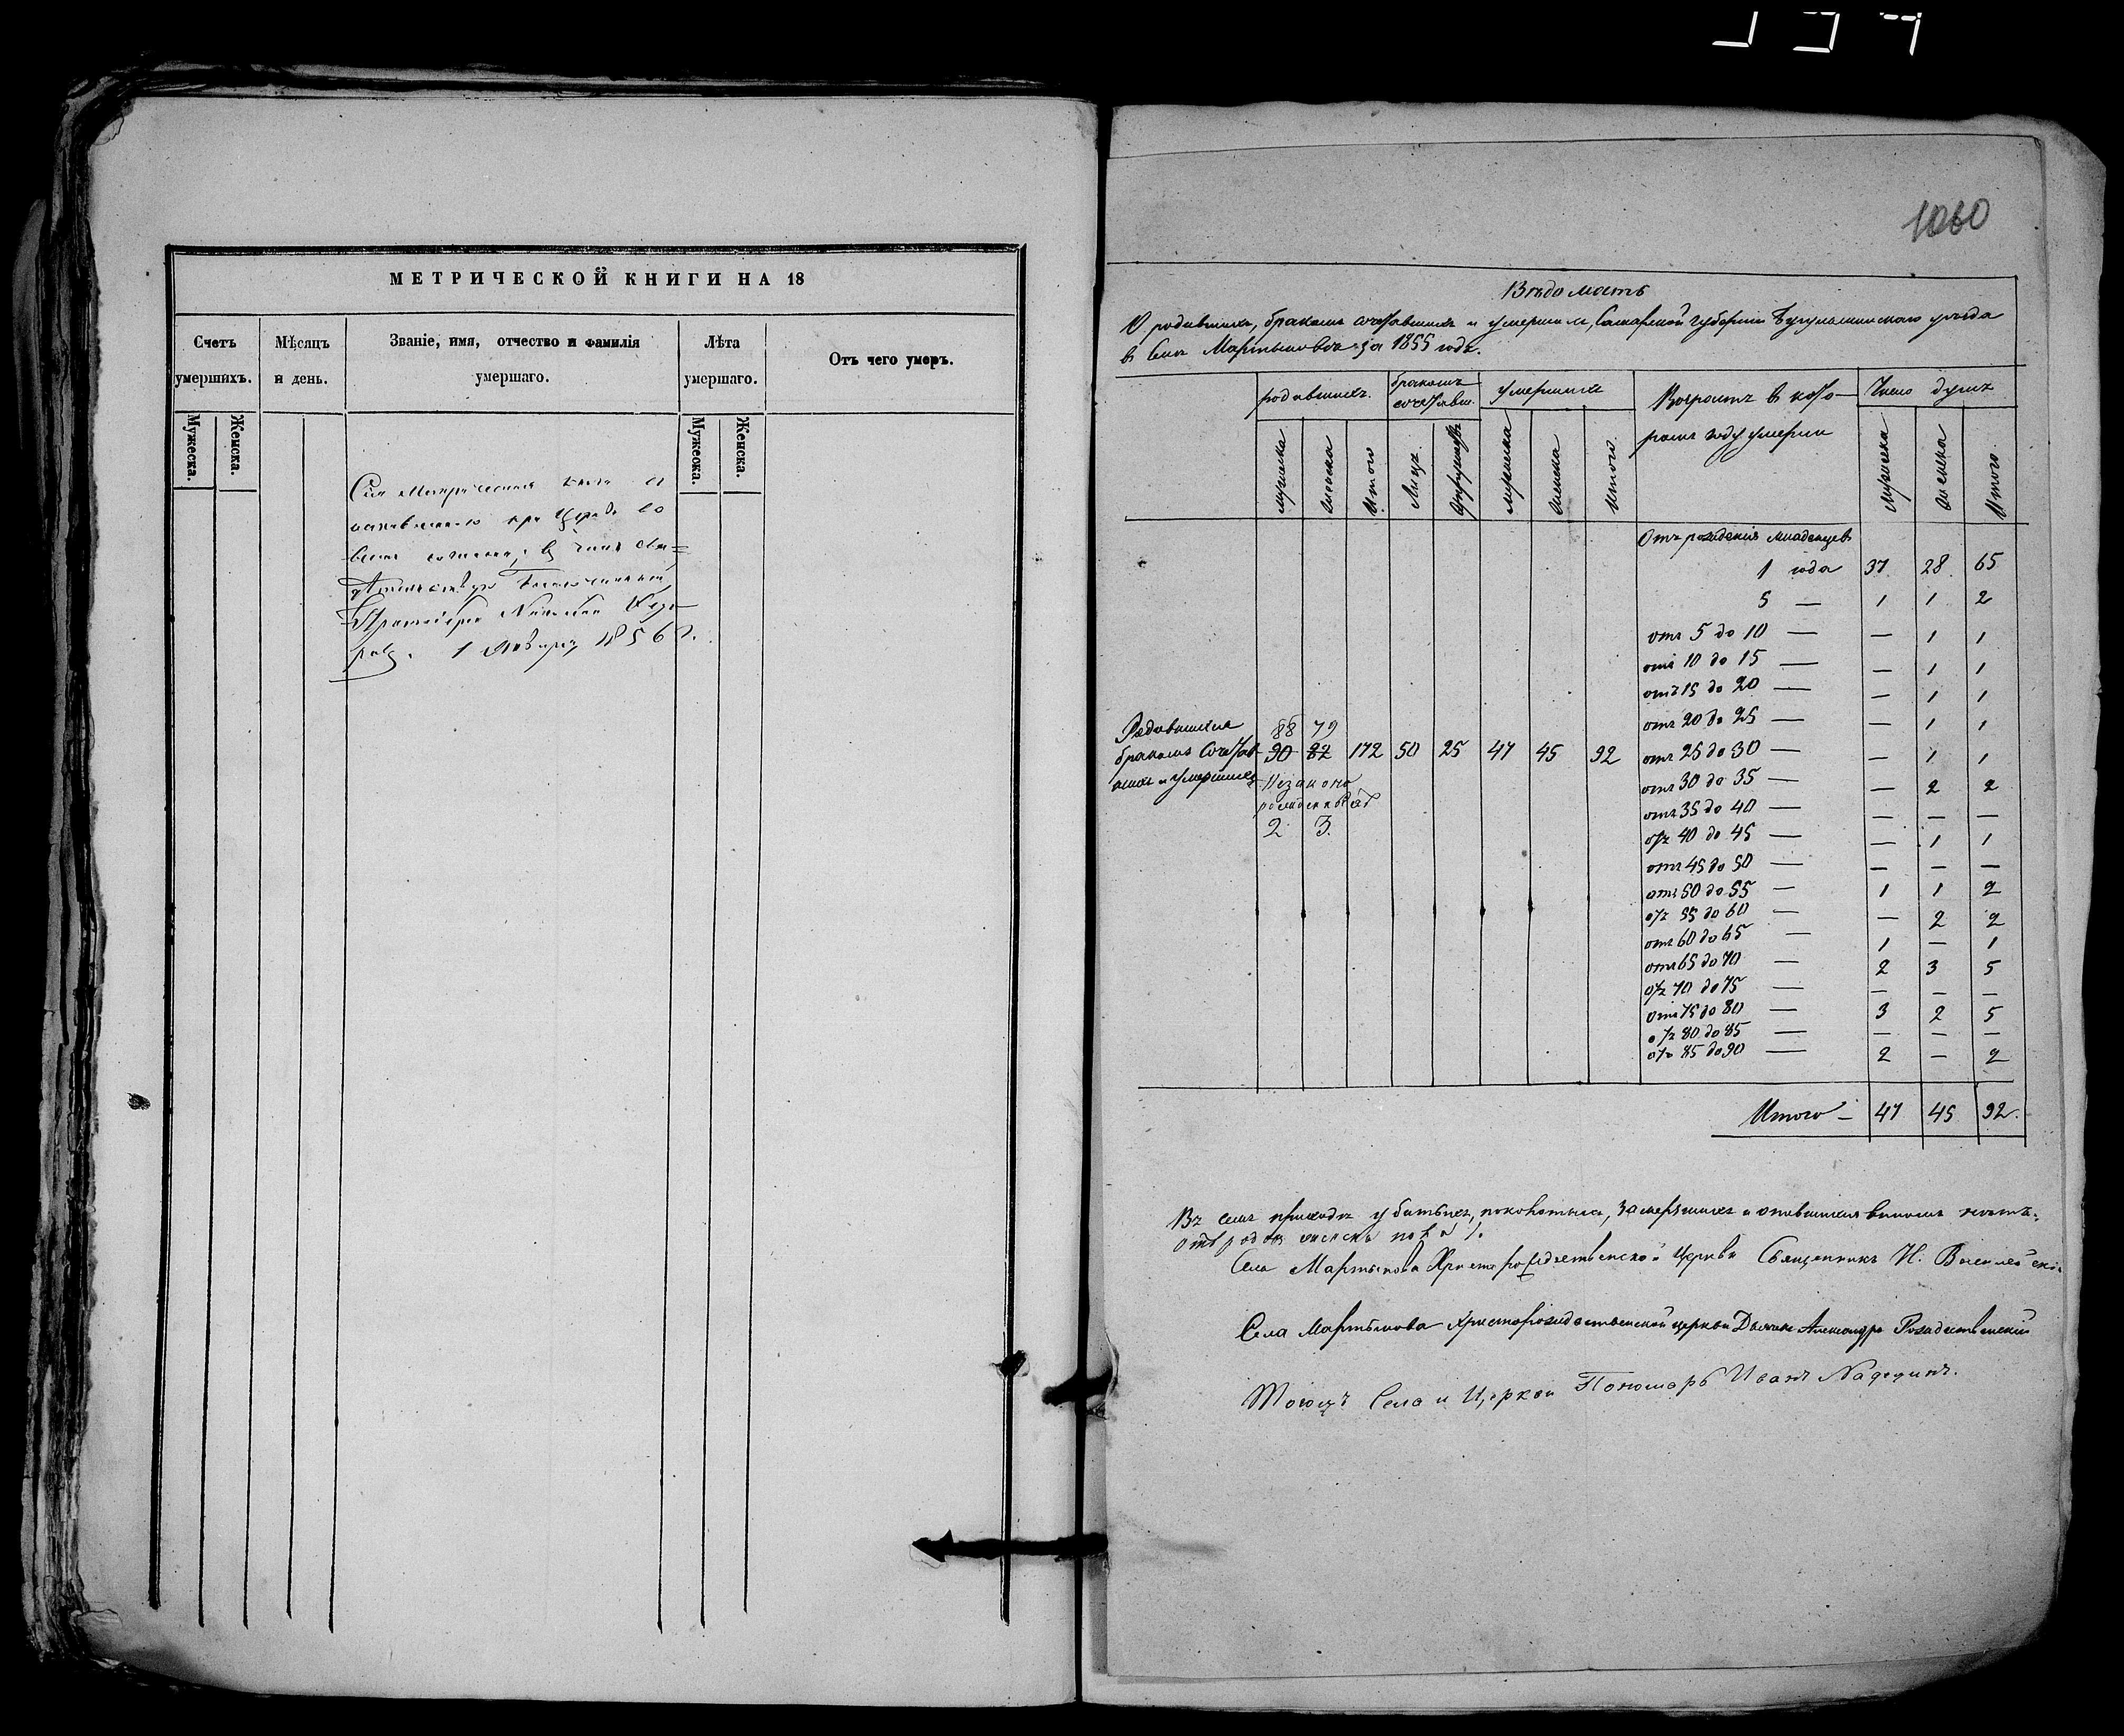 МЕТРИЧЕСКОЙ КНИГИ НА 18
Счетъ умершихъ.
Мѣсяцъ и день.
Званіе, имя, отчество и фамилія умершаго.
Лѣта умершаго.
Отъ чего умеръ.
Мужеска.
Женска.
Мужеска.
Женска.
Сія Метрическая
1 Января 1856 г.
1060
Вѣдомость
О родившихъ, бракомъ сочетавшихъ и умершихъ, Самарской губерніи Бугульминскаго уѣзда
в Селѣ Мартыновкѣ за 1855 годъ.
родившихъ.
бракомъ сочетавш.
умершихъ
Возрастъ в кото-
ромъ году умерли
Число душъ
мужеска
женска
Итого
Лицъ.
Супружествъ
мужеска
женска
Итого.
мужеска
женска
Итого
Отъ рожденія младенцевъ
1 года 37 28 65
5 — 1 1 2
отъ 5 до 10 — — 1 1
отъ 10 до 15 — — 1 1
отъ 15 до 20 — — 1 1
отъ 20 до 25 — — 1 1
Родившихъ
бракомъ сочетав-
шихъ и умершихъ
88 79
90 82 172 50 25 47 45 92
Незаконо
рожденных
2 3.
отъ 25 до 30 — — 1 1
отъ 30 до 35 — — 2 2
отъ 35 до 40 — — — —
отъ 40 до 45 — — 1 1
отъ 45 до 50 — — — —
отъ 50 до 55 — 1 1 2
отъ 55 до 60 — — 2 2
отъ 60 до 65 — 1 — 1
отъ 65 до 70 — 2 3 5
отъ 70 до 75 — — — —
отъ 75 до 80 — 3 2 5
отъ 80 до 85 — — — —
отъ 85 до 90 — 2 — 2
Итого — 47 45 92.
Въ семъ приходѣ убитыхъ, замерзшихъ и опившихся виномъ нѣтъ
Села Мартынова Христорождественской Церкви Священникъ И.
Села Мартынова Христорождественской церкви Дьячекъ Александръ Рождественскій
Тоюжъ Села и Церкви Пономарь Иванъ Надеждинъ.